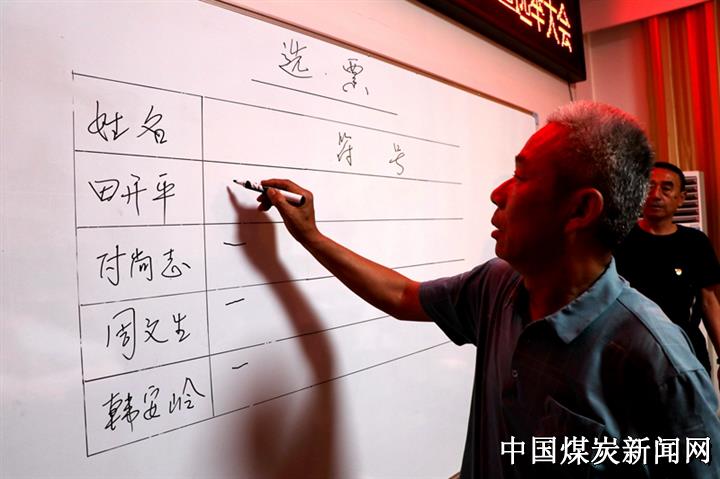 选举大会
选票
姓名 符号
田开平
付尚志 一
周文生 一
韩安岭 一
中国煤炭新闻网